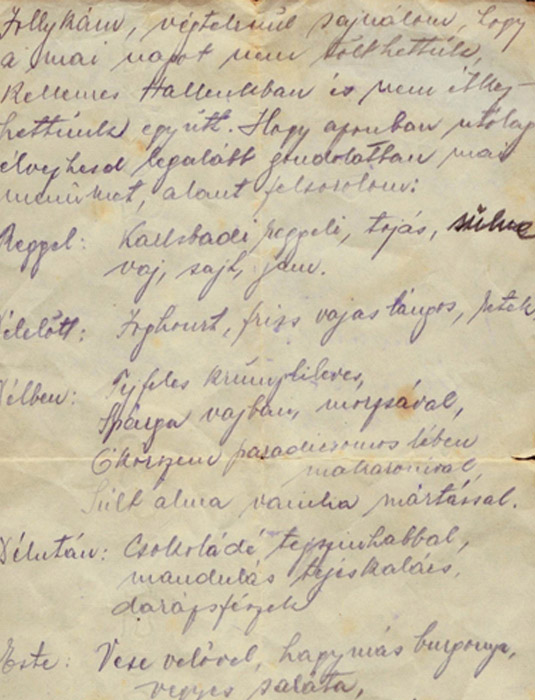 Jollykám, végtelenül sajnálom, hogy
a mai napot nem tölthettük
kellemes Hallenkban és nem étkez-
hettünk együtt. Hogy azonban utólag
élvezhesd legalább gondolatban mai
menünket, alant felsorolom:
Reggel: Karlsbadi reggeli, tojás,
vaj, sajt, jam.
Délelőtt: Joghourt, friss vajas lángos, retek
Délben: Tejfeles krumplileves,
Spárga vajban, morzsával,
Ökörszem paradicsomos lében
makarónival,
Sült alma vanilia mártással.
Délután: Csokoládé tejszinhabbal,
mandulás tejeskalács,
darázsfészek
Este: Vese velővel, hagymás burgonya,
vegyes saláta,